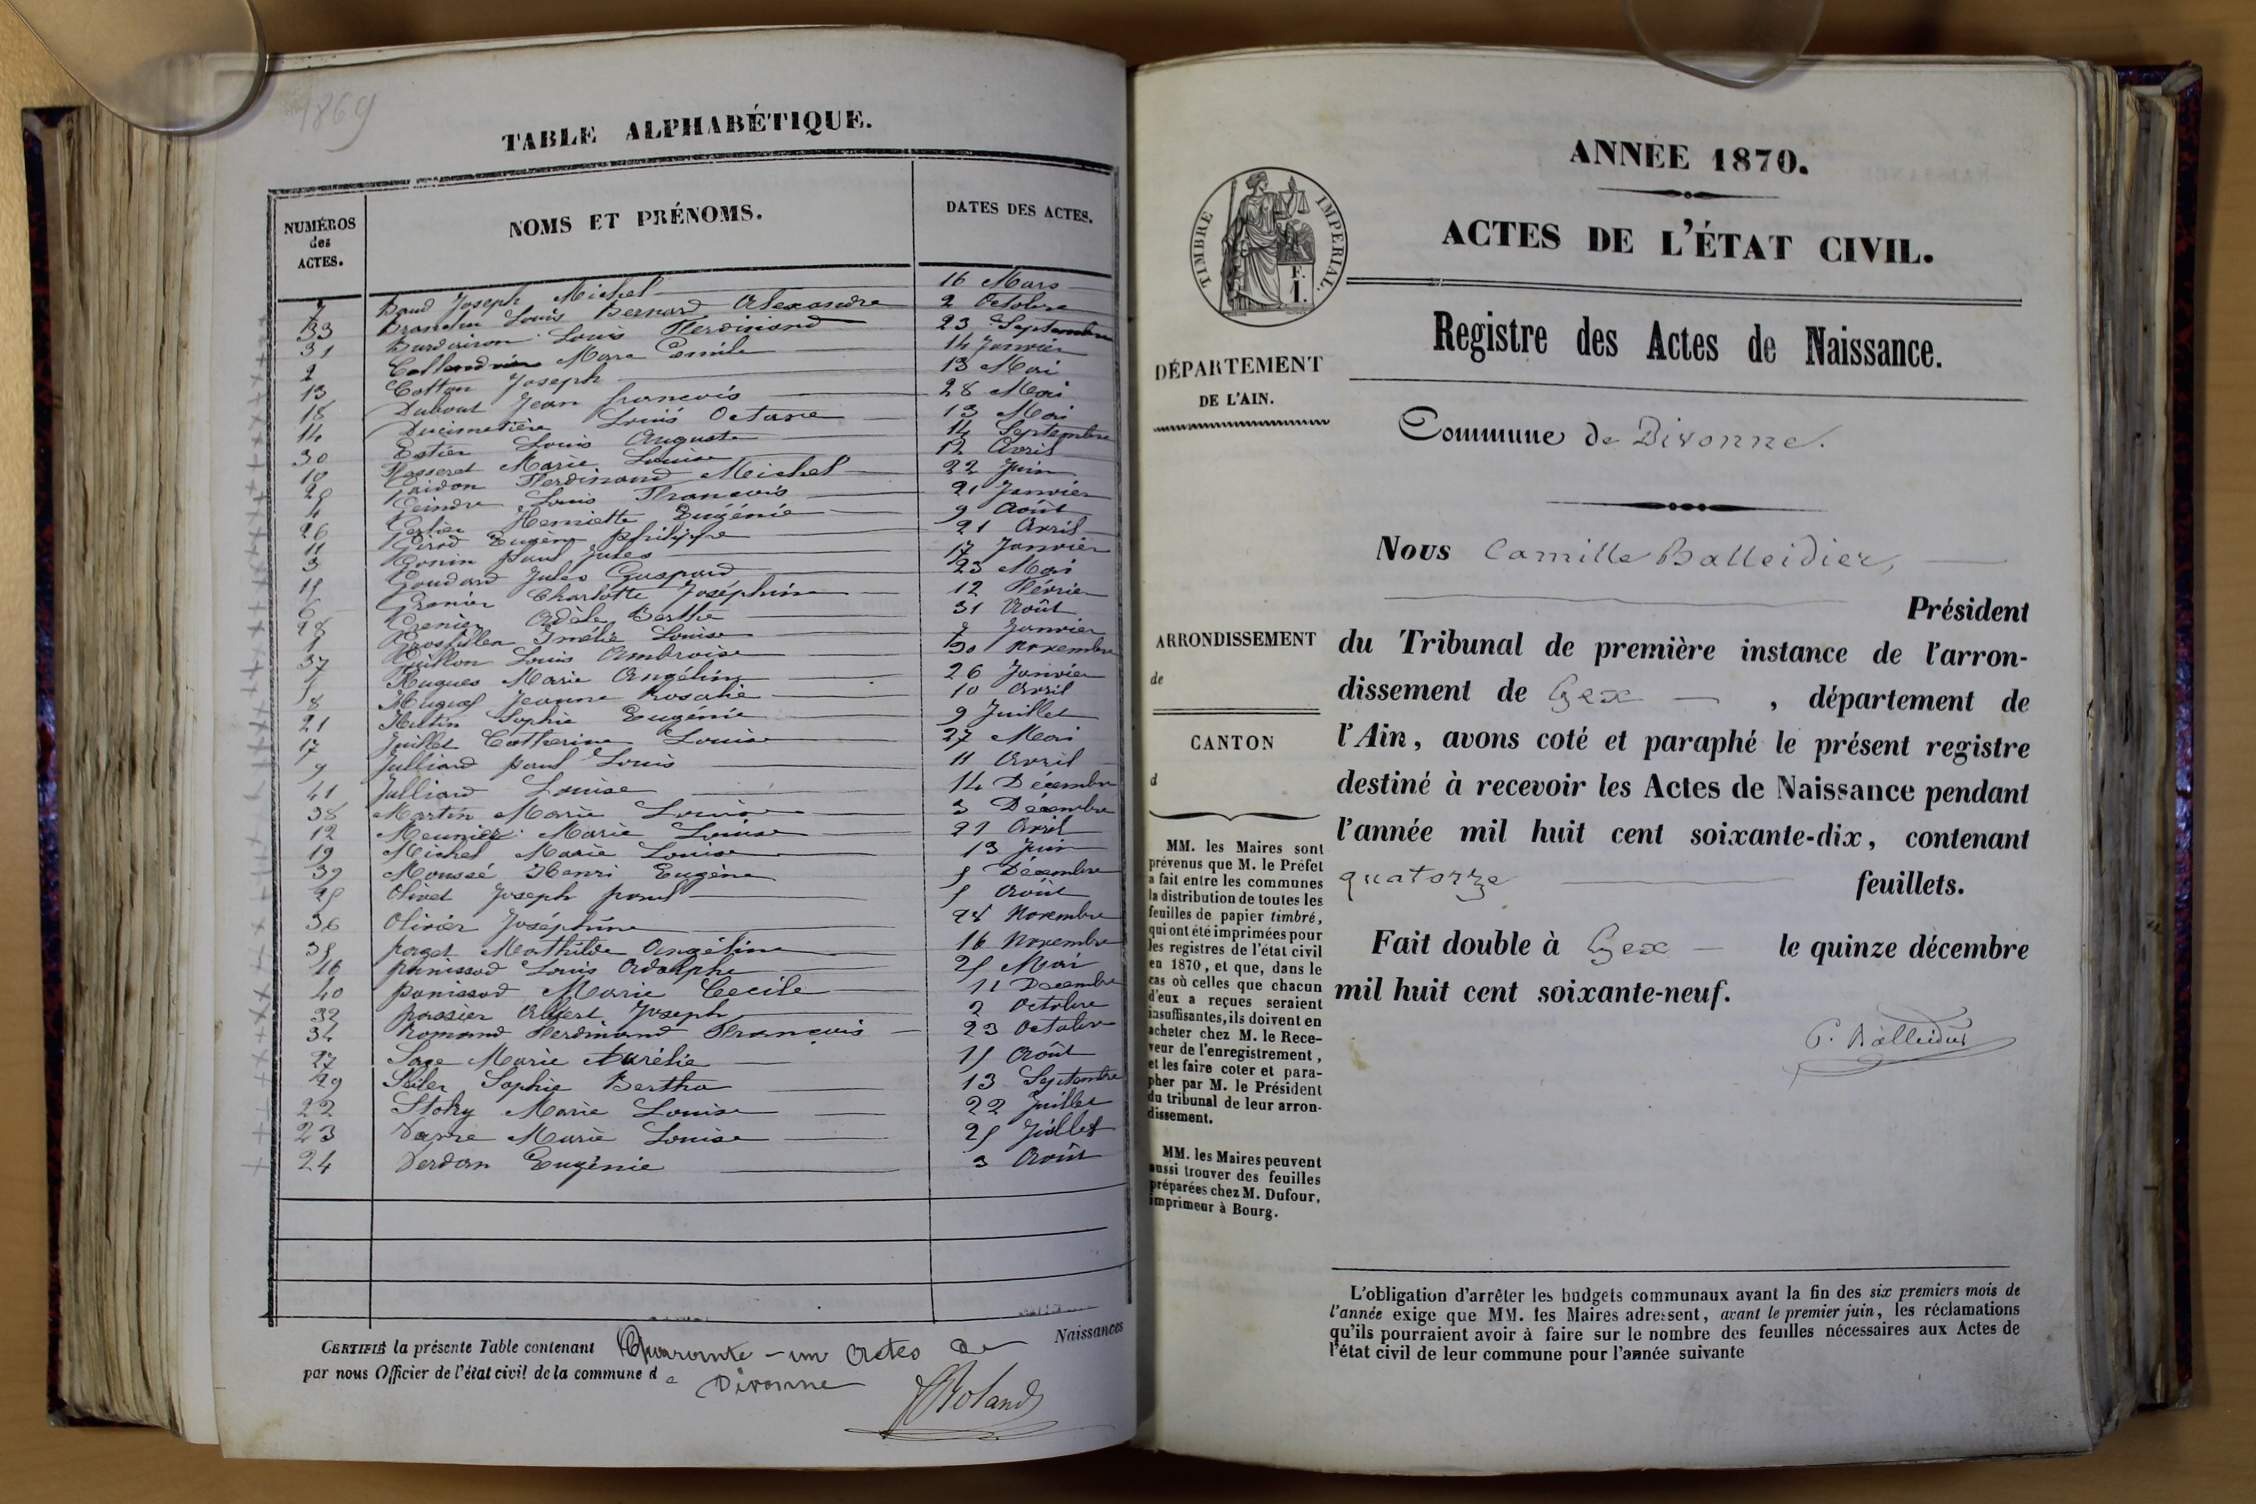 1869
TABLE ALPHABÉTIQUE.
NUMÉROS
des
ACTES.
NOMS ET PRÉNOMS.
DATES DES ACTES.
7 Baud Joseph Michel 16 Mars
33 Louis Bernard Alexandre 2 Octobre
31 Louis Ferdinand 23 Septembre
2 Marc Emile 14 Janvier
13 Cottan Joseph 13 Mai
18 Dubout Jean françois 28 Mai
14 Ducimetière Louis Octave 13 Mai
30 Estier Louis Auguste 14 Septembre
10 Fasseret Marie Louise 12 Avril
20 Ferdinand Michel 22 Juin
4 Louis François 21 Janvier
26 Henriette Eugénie 9 Août
11 Girod Eugène philippe 21 Avril
3 Gonin paul Jules 17 Janvier
15 Goudard Jules Gaspard 23 Mai
6 Grenier Charlotte Joséphine 12 Février
28 Grenier Adèle Berthe 31 Août
1 Grosfillex Louise 7 Janvier
37 Guillon Louis Ambroise 30 Novembre
5 Hugues Marie Angéline 26 Janvier
8 Jeanne Rosalie 10 Avril
21 Hultin Sophie Eugénie 9 Juillet
17 Juillet Catherine Louise 27 Mai
9 Julliard paul Louis 11 Avril
41 Julliard Louise 14 Décembre
38 Martin Marie Louise 3 Décembre
12 Meunier Marie Louise 21 Avril
19 Michel Marie Louise 13 Juin
39 Moussé Henri Eugène 5 Décembre
25 Olivet Joseph paul 5 Août
36 Olivier Joséphine 28 Novembre
35 paget Mathilde Angéline 16 Novembre
16 panissod Louis Adolphe 25 Mai
40 panissod Marie Cécile 11 Decembre
32 passier Albert Joseph 2 Octobre
34 Romand Ferdinand François 23 Octobre
27 Sage Marie Aurélie 15 Août
29 Sophie Bertha 13 Septembre
22 Marie Louise 22 Juillet
23 Marie Louise 25 Juillet
24 Verdan Eugénie 3 Août
CERTIFIÉ la présente Table contenant Quarante-un Actes de Naissances
par nous Officier de l'état civil de la commune de Divonne
Roland
ANNÉE 1870.
ACTES DE L'ÉTAT CIVIL.
TIMBRE IMPÉRIAL.
Registre des Actes de Naissance.
DÉPARTEMENT
DE L'AIN.
Commune de Divonne.
Nous Camille Balleidier,
Président
ARRONDISSEMENT
de
CANTON
d
du Tribunal de première instance de l'arron-
dissement de Gex , département de
l'Ain, avons coté et paraphé le présent registre
destiné à recevoir les Actes de Naissance pendant
l'année mil huit cent soixante-dix, contenant
quatorze feuillets.
Fait double à Gex le quinze décembre
mil huit cent soixante-neuf.
C. Balleidier
MM. les Maires sont
prévenus que M. le Préfet
a fait entre les communes
la distribution de toutes les
feuilles de papier timbré,
qui ont été imprimées pour
les registres de l'état civil
en 1870, et que, dans le
cas où celles que chacun
d'eux a reçues seraient
insuffisantes, ils doivent en
acheter chez M. le Rece-
veur de l'enregistrement,
et les faire coter et para-
pher par M. le Président
du tribunal de leur arron-
dissement.
MM. les Maires peuvent
aussi trouver des feuilles
préparées chez M. Dufour,
imprimeur à Bourg.
L'obligation d'arrêter les budgets communaux avant la fin des six premiers mois de
l'année exige que MM. les Maires adressent, avant le premier juin, les réclamations
qu'ils pourraient avoir à faire sur le nombre des feuilles nécessaires aux Actes de
l'état civil de leur commune pour l'année suivante